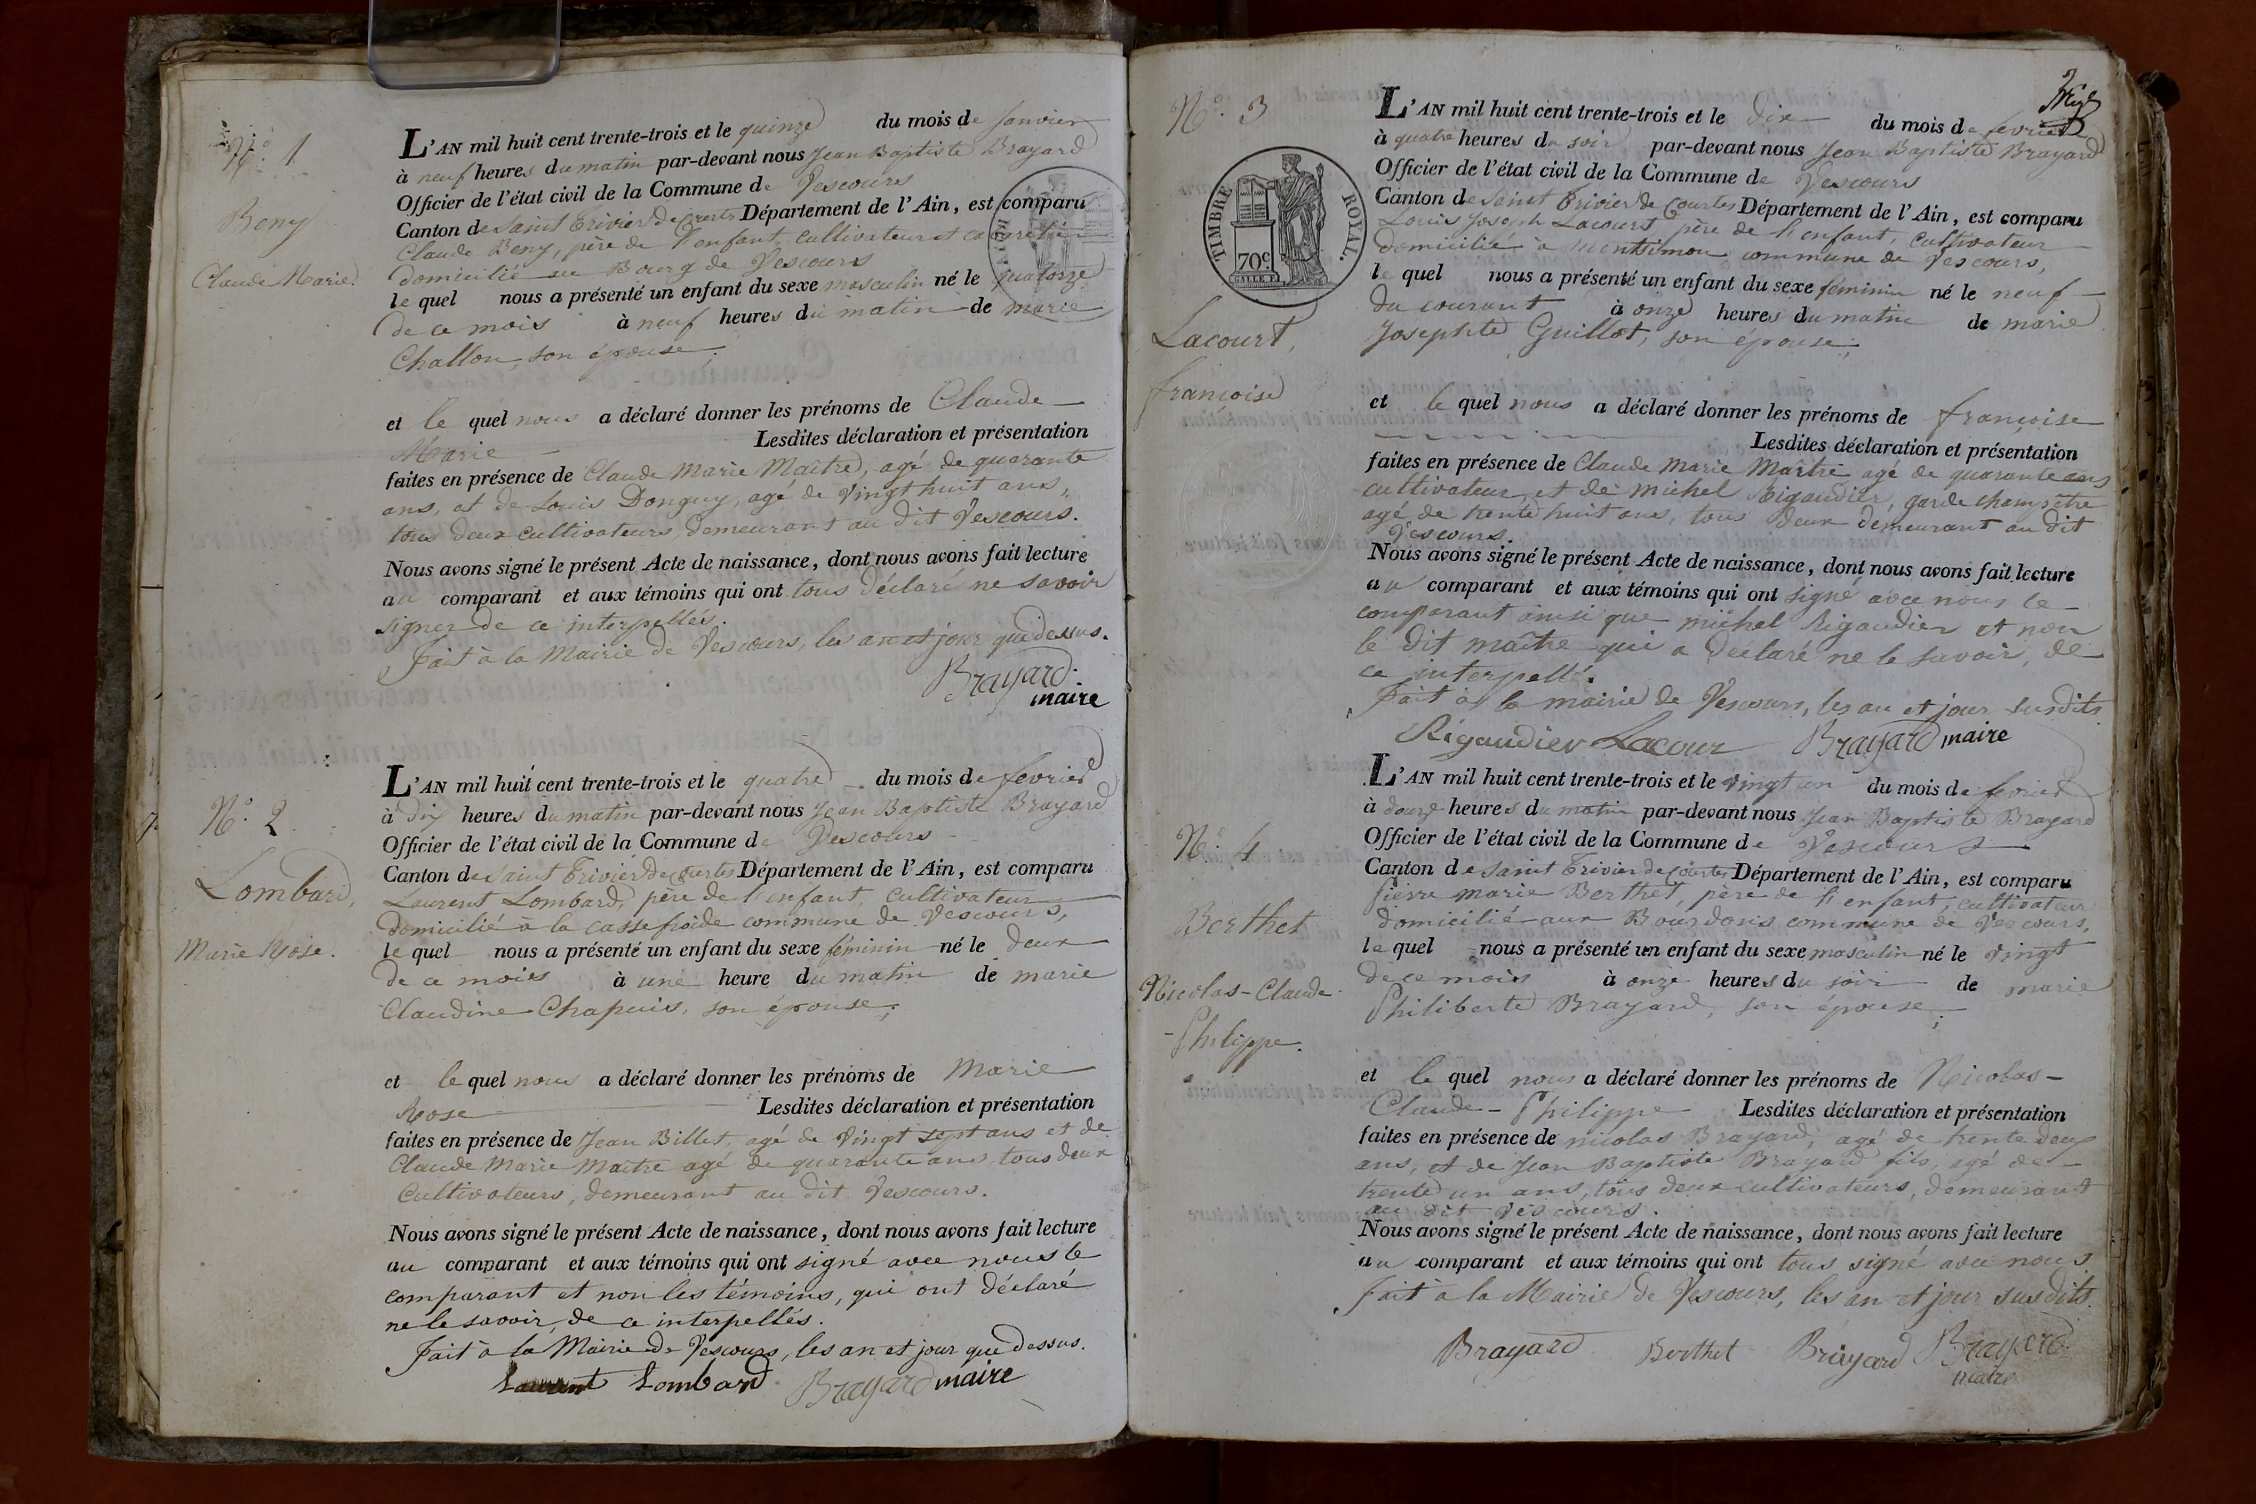 N.° 1
Beny
Claude Marie.
L'AN mil huit cent trente-trois et le quinze du mois de Janvier
à neuf heures du matin par-devant nous Jean Baptiste Brayard
Officier de l'état civil de la Commune de Vescours
Canton de Saint Trivier de Courtes Département de l'Ain, est comparu
Claude Beny, père de l'enfant, cultivateur et
domicilié au Bourg de Vescours
le quel nous a présenté un enfant du sexe masculin né le quatorze
de ce mois à neuf heures du matin de marie
Challon, son épouse;
et le quel nous a déclaré donner les prénoms de Claude
Marie Lesdites déclaration et présentation
faites en présence de Claude Marie Maître, agé de quarante
ans, et de Louis Donguy, agé de vingt huit ans,
tous deux cultivateurs, demeurant au dit Vescours.
Nous avons signé le présent Acte de naissance, dont nous avons fait lecture
au comparant et aux témoins qui ont tous déclaré ne savoir
signer de ce interpellés.
Fait à la Mairie de Vescours, les an et jour que dessus.
Brayard
maire
N.° 2
Lombard,
Marie Rose.
L'AN mil huit cent trente-trois et le quatre du mois de fevrier
à dix heures du matin par-devant nous Jean Baptiste Brayard
Officier de l'état civil de la Commune de Vescours
Canton de Saint Trivier de Courtes Département de l'Ain, est comparu
Laurent Lombard, père de l'enfant, cultivateur
domicilié à la casse froide commune de Vescours,
le quel nous a présenté un enfant du sexe féminin né le deux
de ce mois à une heure du matin de marie
Claudine Chapuis, son épouse;
et le quel nous a déclaré donner les prénoms de Marie
Rose Lesdites déclaration et présentation
faites en présence de Jean Billet, agé de vingt sept ans et de
Claude Marie Maître agé de quarante ans tous deux
Cultivateurs, demeurant au dit Vescours.
Nous avons signé le présent Acte de naissance, dont nous avons fait lecture
au comparant et aux témoins qui ont signé avec nous le
comparant et non les témoins, qui ont déclaré
ne le savoir, de ce interpellés.
Fait à la Mairie de Vescours, les an et jour que dessus.
Laurent Lombard Brayard maire
N.° 3
TIMBRE ROYAL.
70c
Lacourt,
françoise
L'AN mil huit cent trente-trois et le dix du mois de fevrier
à quatre heures du soir par-devant nous Jean Baptiste Brayard
Officier de l'état civil de la Commune de Vescours
Canton de Saint Trivier de Courtes Département de l'Ain, est comparu
Louis Joseph Lacourt, père de l'enfant, cultivateur
domicilié à Montsimon commune de Vescours,
le quel nous a présenté un enfant du sexe féminin né le neuf
du courant à onze heures du matin de marie
Josephte Guillot, son épouse;
et le quel nous a déclaré donner les prénoms de françoise
Lesdites déclaration et présentation
faites en présence de Claude Marie Maître agé de quarante ans
cultivateur, et de michel Rigaudier, garde champêtre
agé de trente huit ans, tous deux demeurant au dit
Vescours.
Nous avons signé le présent Acte de naissance, dont nous avons fait lecture
au comparant et aux témoins qui ont signé avec nous le
comparant ainsi que michel Rigaudier et non
le dit maître qui a déclaré ne le savoir, de
ce interpellé.
Fait à la mairie de Vescours, les an et jour susdits
Rigaudier Lacour Brayard maire
N.° 4
Berthet
Nicolas-Claude
-Philippe.
L'AN mil huit cent trente-trois et le vingt un du mois de fevrier
à douze heures du matin par-devant nous Jean Baptiste Brayard
Officier de l'état civil de la Commune de Vescours
Canton de Saint Trivier de Courtes Département de l'Ain, est comparu
Pierre marie Berthet, père de l'enfant, cultivateur
domicilié aux Bourdons commune de Vescours,
le quel nous a présenté un enfant du sexe masculin né le vingt
de ce mois à onze heures du soir de marie
Philiberte Brayard, son épouse;
et le quel nous a déclaré donner les prénoms de Nicolas-
Claude-Philippe Lesdites déclaration et présentation
faites en présence de nicolas Brayard, agé de trente deux
ans, et de Jean Baptiste Brayard fils, agé de
trente un ans, tous deux cultivateurs, demeurant
au dit Vescours.
Nous avons signé le présent Acte de naissance, dont nous avons fait lecture
au comparant et aux témoins qui ont tous signé avec nous
Fait à la Mairie de Vescours, les an et jour susdits.
Brayard Berthet Brayard Brayard
maire